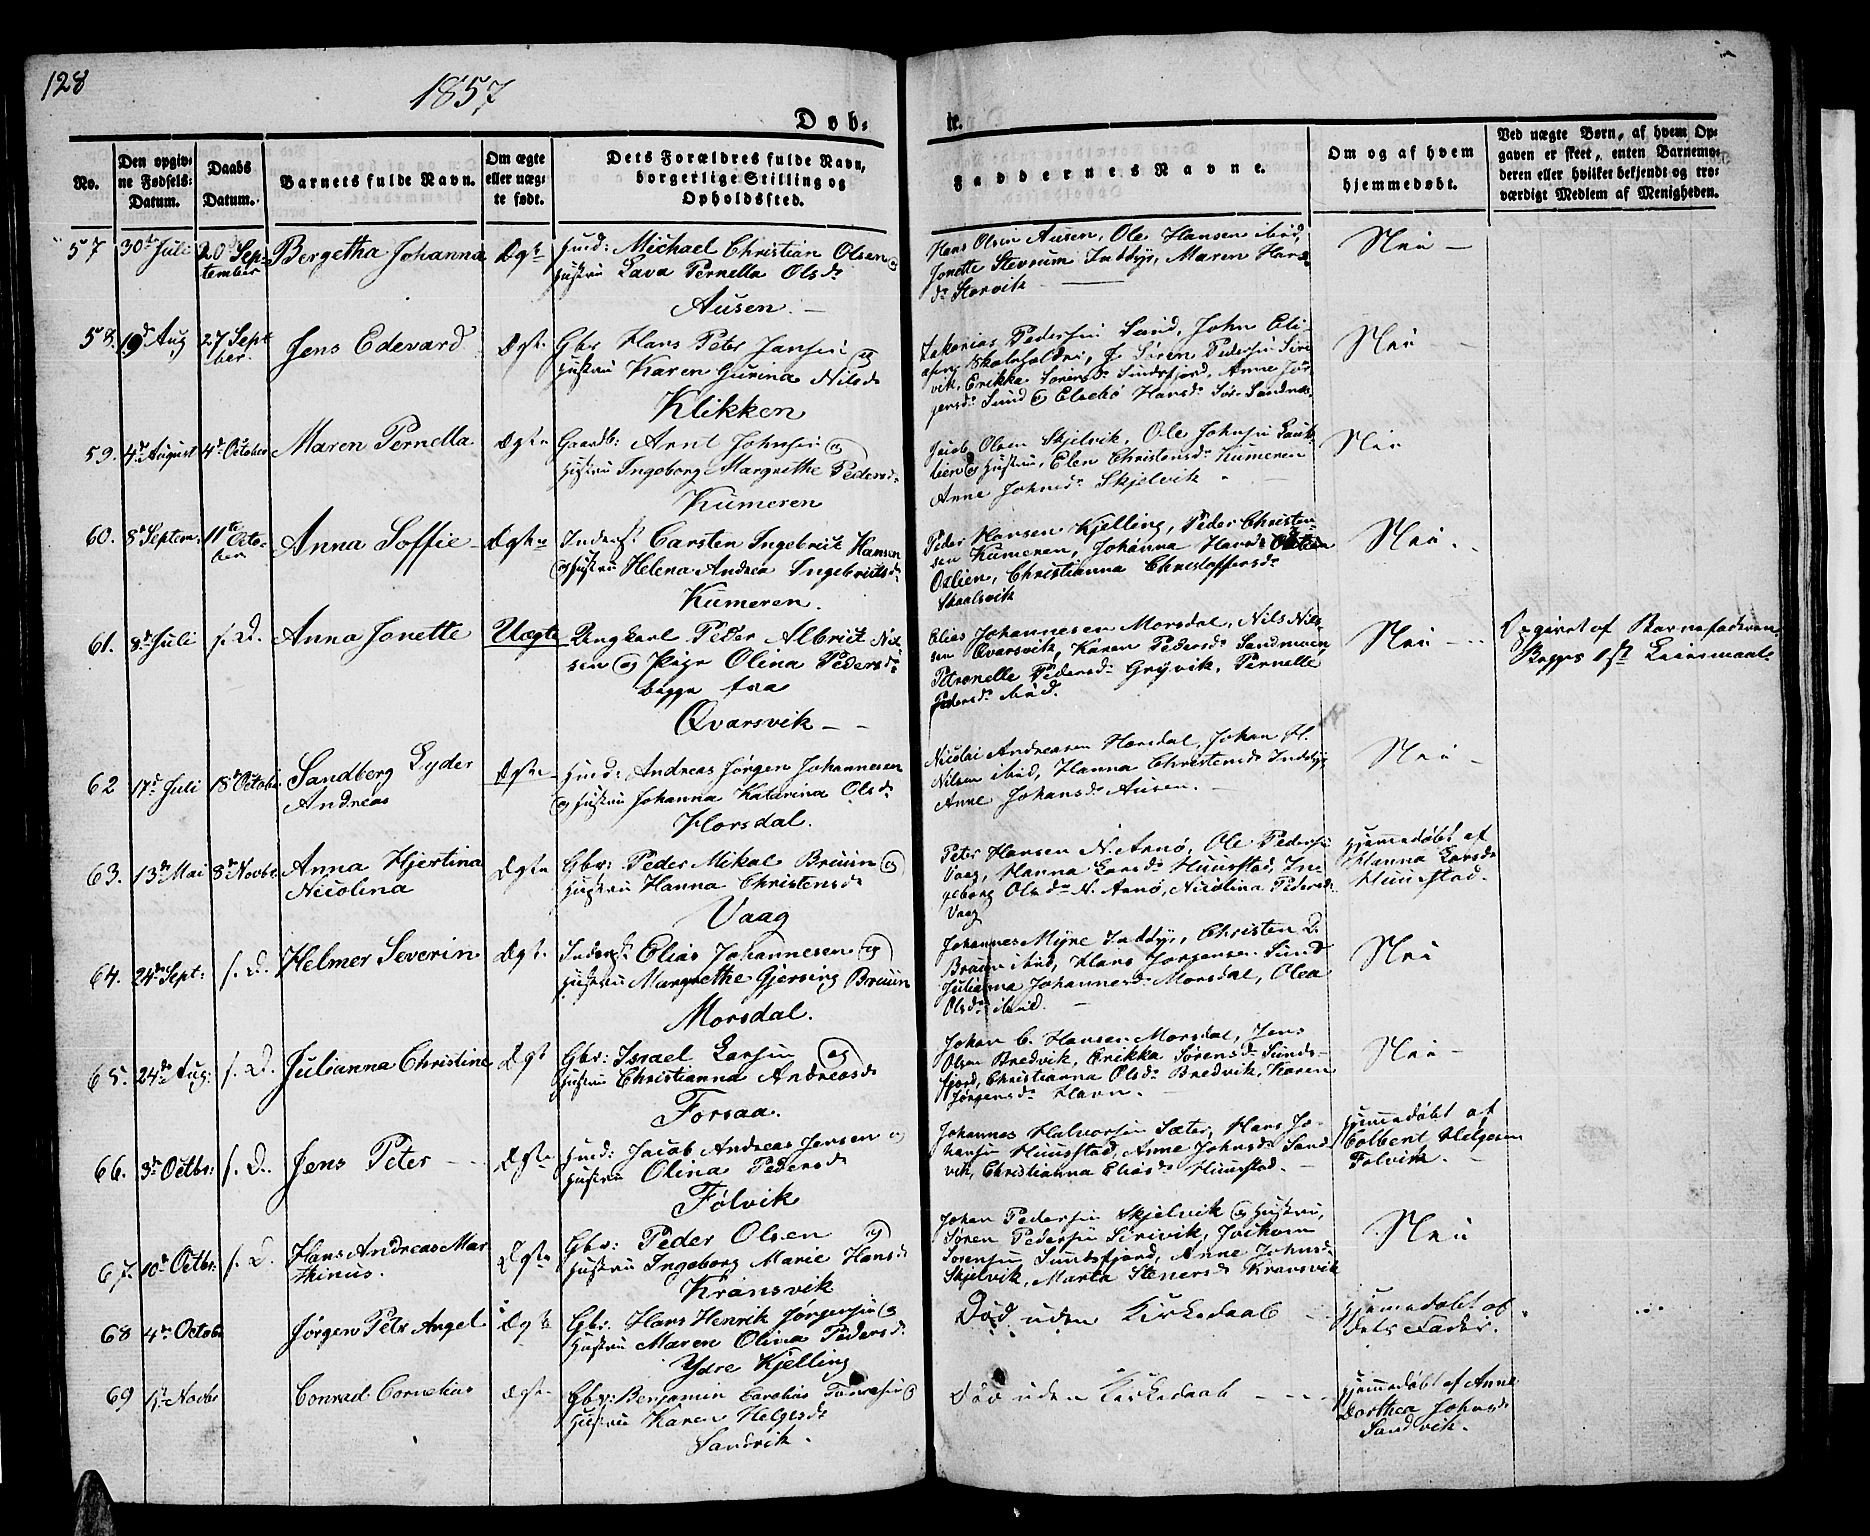 128
1857
Døb-
te.
No.
Den opgiv-
ne Fødsels-
Datum.
Daabs
Datum.
Barnets fulde Navn.
Om ægte
eller uæg-
te født.
Dets Forældres fulde Navn,
borgerlige Stilling og
Opholdssted.
Faddernes Navne.
Om og af hvem
hjemmedøbt.
Ved uægte Børn, af hvem Op-
gaven er skeet, enten Barnemo-
deren eller hvilket bekjendt og tro-
værdigt Medlem af Menigheden.
57
30te Juli
20de Sep-
tember
Bergetha Johanna
Ægte
Huusm: Michael Christian Olsen og
Hustru Lava Pernella Olsdr
Ausen.
Hans Olsen Ausen, Ole Hansen ibid,
Jonette Stensum Inddyr, Maren Hans-
dr Storvik
Nei
58.
19d Aug
27 Sept
ber.
Jens Edevard
Ægte
Gbr Hans Peter Jansen og
Hustru Karen Gurina Nilsdr
Klikken
Zakarias Pedersen Sund, John Eli-
asen Skoleholder, Søren Pedersen Siri-
vik, Erikka Sørensdr Sundsfjord, Anne Jør-
gensdr Sund og Elsebø Hansdr Sør-Sandnes.
Nei
59.
4de August
4de October
Maren Pernella.
Ægte
Gaardb: Arnt Johnsen og
Hustru Ingeborg Margrethe Pedersdr
Kumeren
Jacob Olsen Skjelvik, Ole Johnsen
og Hustru, Elen Christensdr Kumeren
Anne Johnsdr Skjelvik
Nei
60.
8de Septem:
11te Octo-
ber
Anna Soffie
Ægte
Inderst: Carsten Ingebrict Hansen
og Hustru Helena Andrea Ingebrictsdr
Kumeren.
Peder Hansen Kjelling, Peder Christen-
sen Kumeren, Johanna Hansdr
Oslien, Christianna Christoffersdr
Skaalsvik
Nei
61.
8de Juli
s. D.
Anna Jonette
Uægte
Ungkarl Peder Albrict Nil-
sen og Pige Olina Pedersdr
begge fra
Qvarsvik
Elias Johannesen Morsdal, Nils Nils-
sen Qvarsvik, Karen Pedersdr Sandmoen,
Petronelle Pedersdr Grývik, Pernelle
Pedersdr ibid.
Nei
Opgivet af Barnefaderen.
Begges 1st Leiermaal.
62
17de Juli
18de Octobr
Sandberg Lyder
Andreas
Ægte
Huusm: Andreas Jørgen Johannesen
og Hustru Johanna Katarina Olsdr
Horsdal.
Nicolai Andreasen Horsdal, Johan H.
Nilsen ibid, Hanna Christensdr Inddyr
Anne Johansdr Ausen.
Nei
63.
13de Mai
8de Novbr
Anna Hjertina
Nicolina
Ægte
Gbr: Peder Mikal Bruun og
Hustru Hanna Christensdr
Vaag
Peter Hansen N. Arnø, Ole Pedersen
Vaag, Hanna Larsdr Huusstad, In-
geborg Olsdr N. Arnø, Nicolina Pedersdr
Vaag
Hjemmedøbt af
Hanna Larsdr
Huusstad.
64.
24de Sept:
s. D.
Helmer Severin
Ægte
Inderst Elias Johannesen og
Hustru Margrethe Gjersing Bruun
Morsdal.
Johannes Myre Inddyr, Christen D.
Bruun ibid, Hans Jørgensen Sund
Julianna Johannesdr Morsdal, Olea
Olsdr ibid.
Nei
65.
24de Aug:
s. D.
Julianna Christine
Ægte
Gbr: Israel Larsen og
Hustru Christianna Andreasdr
Forsaa.
Johan C. Hansen Morsdal, Jens
Olsen Bredvik, Erikka Sørensdr Sunds-
fjord, Christianna Olsdr Bredvik, Karen
Jørgensdr Havn.
Nei
66.
3de Octbr:
s. D.
Jens Peter
Ægte
Huusm: Jacob Andreas Jensen og
Hustru Olina Pedersdr
Følvik
Johannes Halvorsen Sæter, Hans Jo-
hansen Huusstad, Anne Johnsdr Sand-
vik, Christianna Eliasdr Huusstad.
Hjemmedøbt af
Colbent Helgesen
Følvik.
67.
10de Octbr:
s. D.
Hans Andreas Mar-
thinus.
Ægte
Gbr: Peder Olsen og
Hustru Ingeborg Marie Hansdr
Kransvik
Johan Pedersen Skjelvik og Hustru,
Søren Pedersen Sirivik, Joikom
Sørensen Sundsfjord, Anne Johnsdr
Skjelvik, Marta Stenersdr Kransvik
Nei
68
4de Octobr
Jørgen Petr Angel
Ægte
Gbr. Hans Henrik Jørgensen og
Hustru Maren Olina Pedersdr
Ydre Kjelling
Død uden Kirkedaab
Hjemmedøbt af
dets Fader.
69
1ste Novbr
Conrad Cornelius
Ægte
Gbr: Benjamin Carolius og
Hustru Karen Helgesdr
Sandvik.
Død uden Kirkedaab
Hjemmedøbt af Anne
Dorthea Johnsdr
Sandvik.